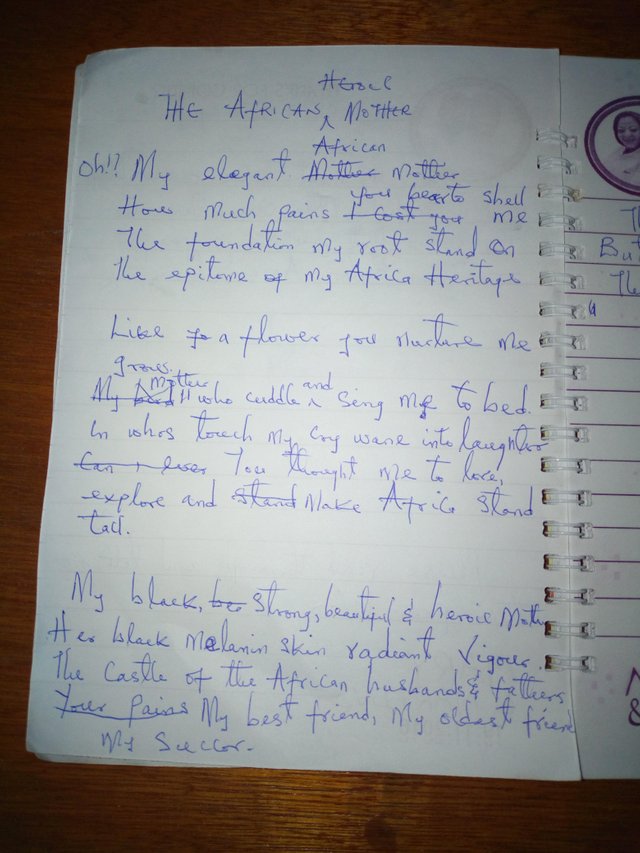 Heroic
THE AFRICAN ^ MOTHER
African
Oh!? My elegant Mother Mother
you bear to shell
How much pains I cost you me
The foundation my root stand on
The epitome of my Africa Heritage
Like a flower you nurture me
grow.
Mother and
My who cuddle ^ sing me to bed.
In whos touch my cry wane into laughter
Can I ever You thought me to love,
explore and stand Make Africa stand
tall.
My black, be strong, beautiful & heroic Mothe
Her black Melanin skin radiant vigour.
The castle of the African husbands & fathers
Your pains My best friend, My oldest friend
My Succor.
Th
But
The
&